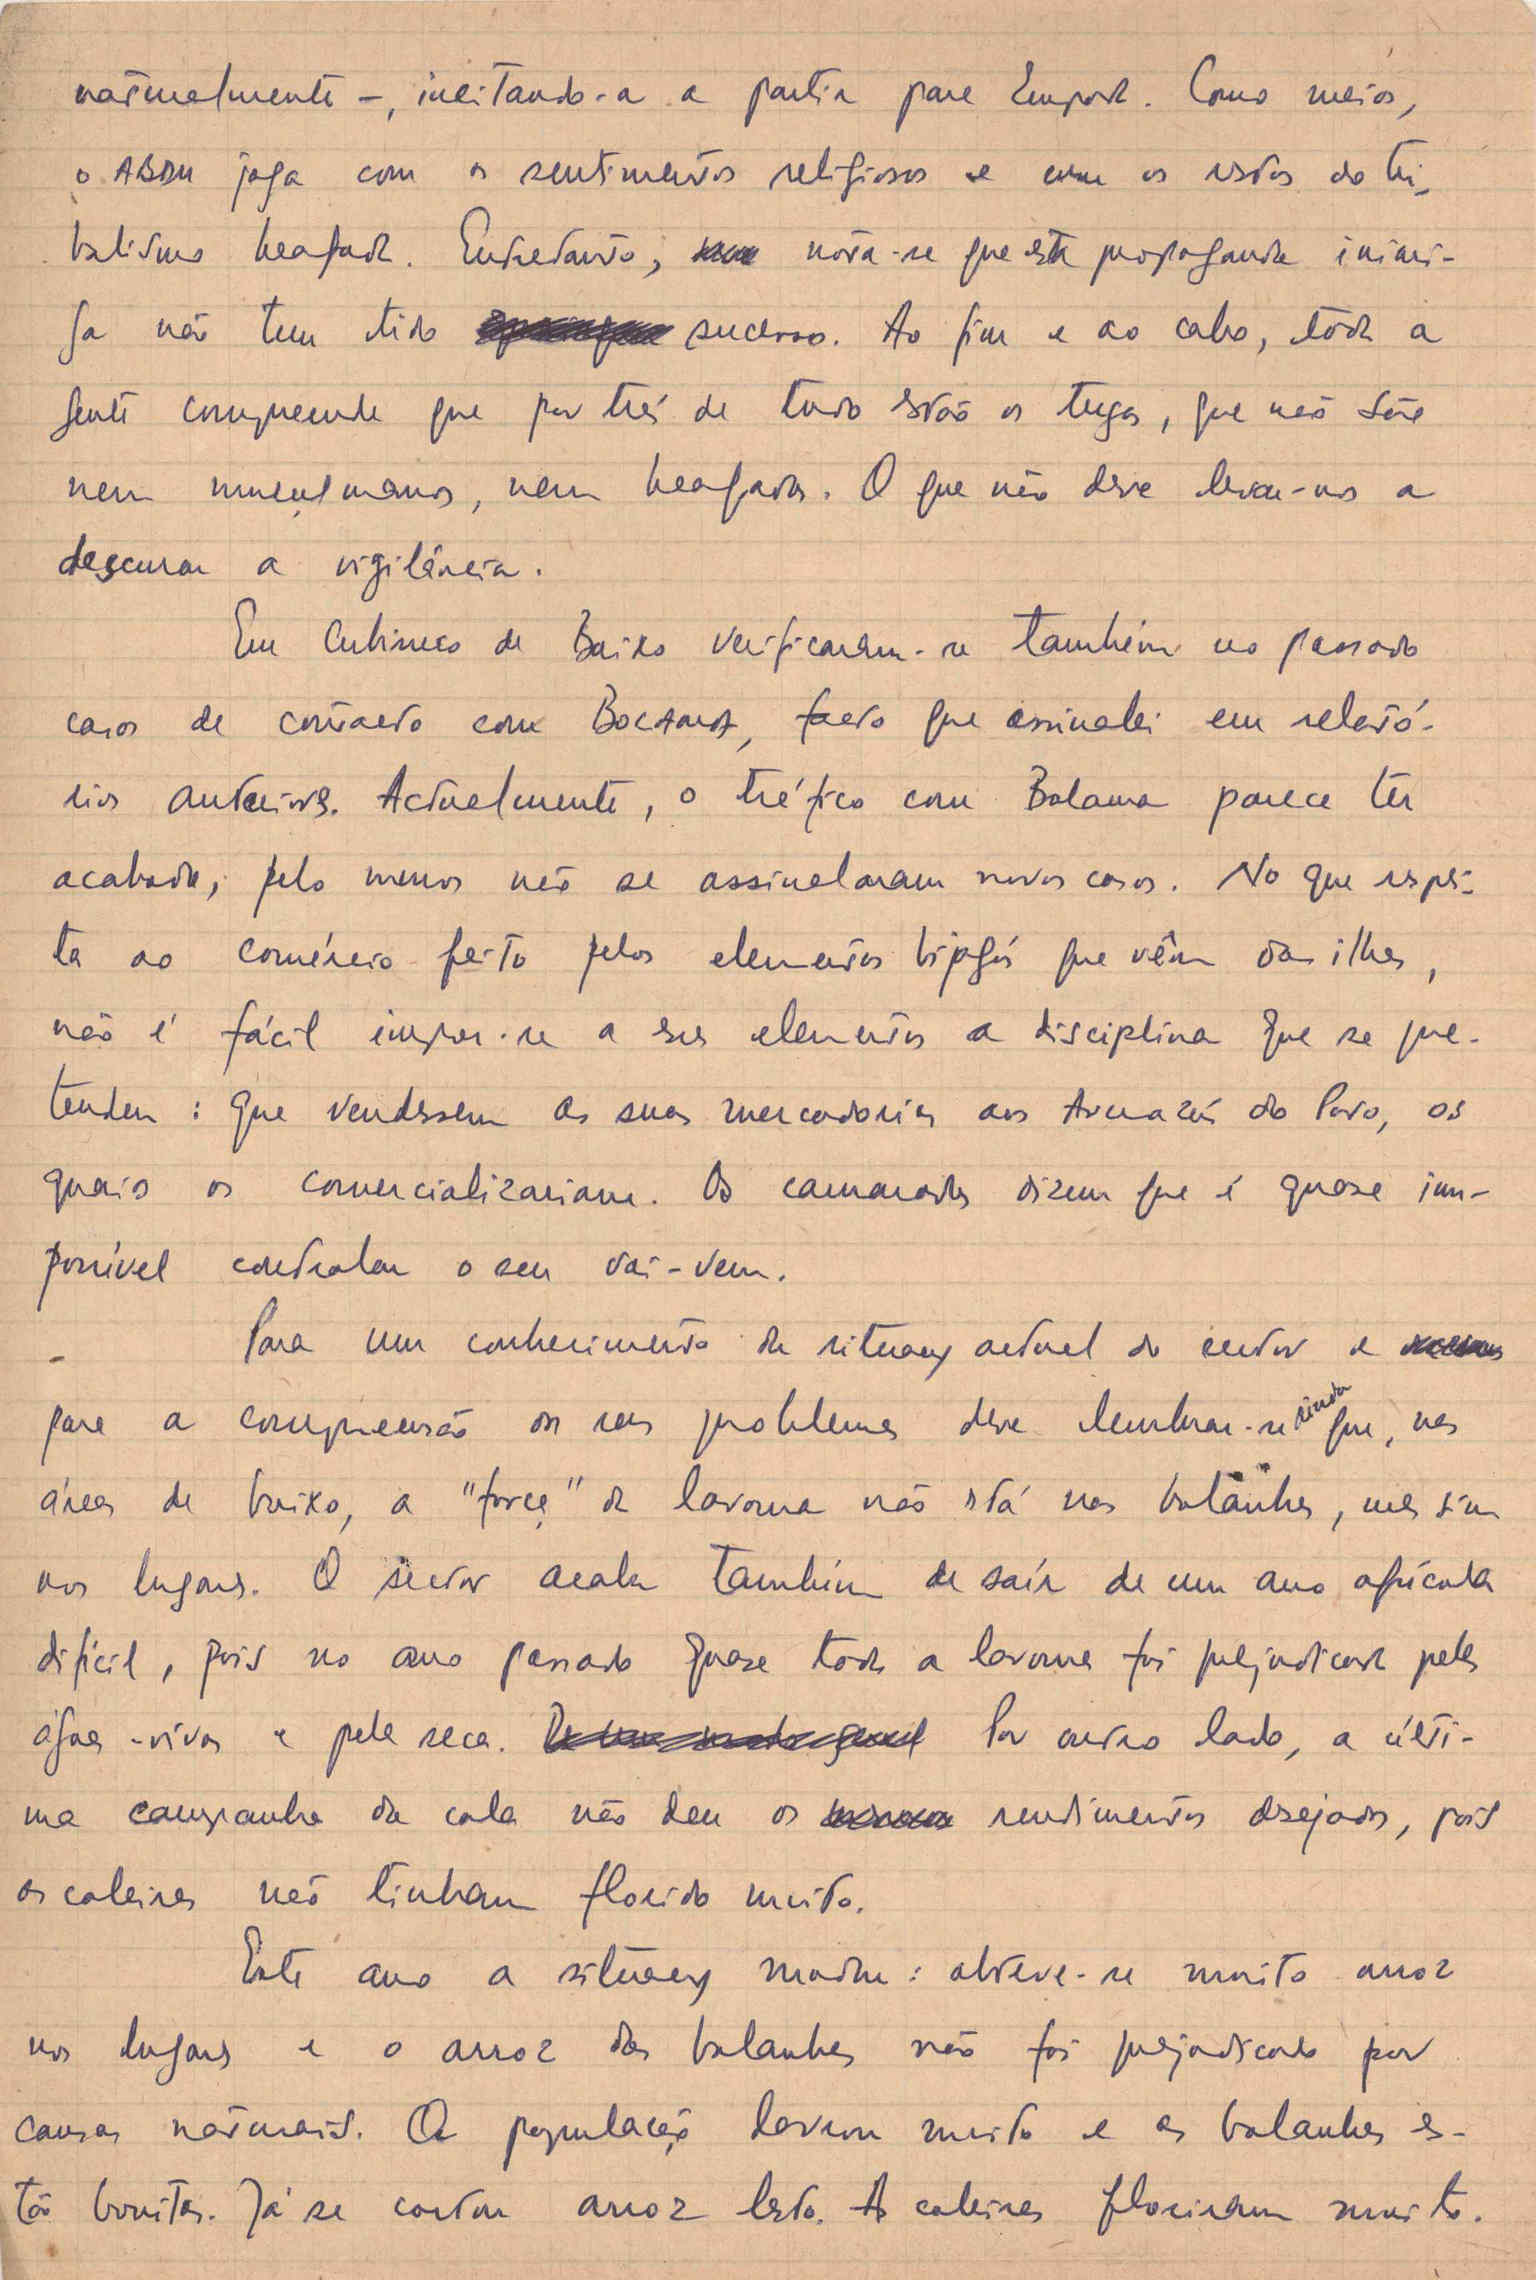 naturalmente -, incitando-a a partir para Empada. Como meios,
o ABDU joga com os sentimentos religiosos e com os restos do tri-
balismo beafada. Entretanto, nota-se que esta propaganda inimi-
ga não tem tido sucesso. Ao fim e ao cabo, toda a
gente compreende que por trás de tudo estão os tugas, que não são
nem muçulmanos, nem beafadas. O que não deve levar-nos a
descurar a vigilância.
Em Cubisseco de Baixo verificaram-se também no passado
casos de contacto com BOLAMA, facto que assinalei em relató-
rios anteriores. Actualmente, o tráfico com Bolama parece ter
acabado, pelo menos não se assinalaram novos casos. No que respei-
ta ao comércio feito pelos elementos bijagós que vêm das ilhas,
não é fácil impor-se a esses elementos a disciplina que se pre-
tenden : que vendessem as suas mercadorias aos Armazéns do Povo, os
quais os comercializariam. Os camaradas dizem que é quase im-
possível controlar o seu vai-vem.
- Para um conhecimento da situação actual do sector e
para a compreensão dos seus problemas deve lembrar-se ainda que, nas
áreas de baixo, a "força" da lavoura não está nas bolanhas, mas sim
nos lugares. O sector acaba também de sair de um ano agrícola
difícil, pois no ano passado quase toda a lavoura foi prejudicada pelas
águas-vivas e pela seca. Por outro lado, a últi-
ma campanha da cola não deu os rendimentos desejados, pois
as coleiras não tinham florido muito.
Este ano a situação mudou : obteve-se muito arroz
nos lugares e o arroz das bolanhas não foi prejudicado por
causas naturais. A população lavrou muito e as bolanhas es-
tão bonitas. Já se cortou arroz lesto. As coleiras floriram muito.